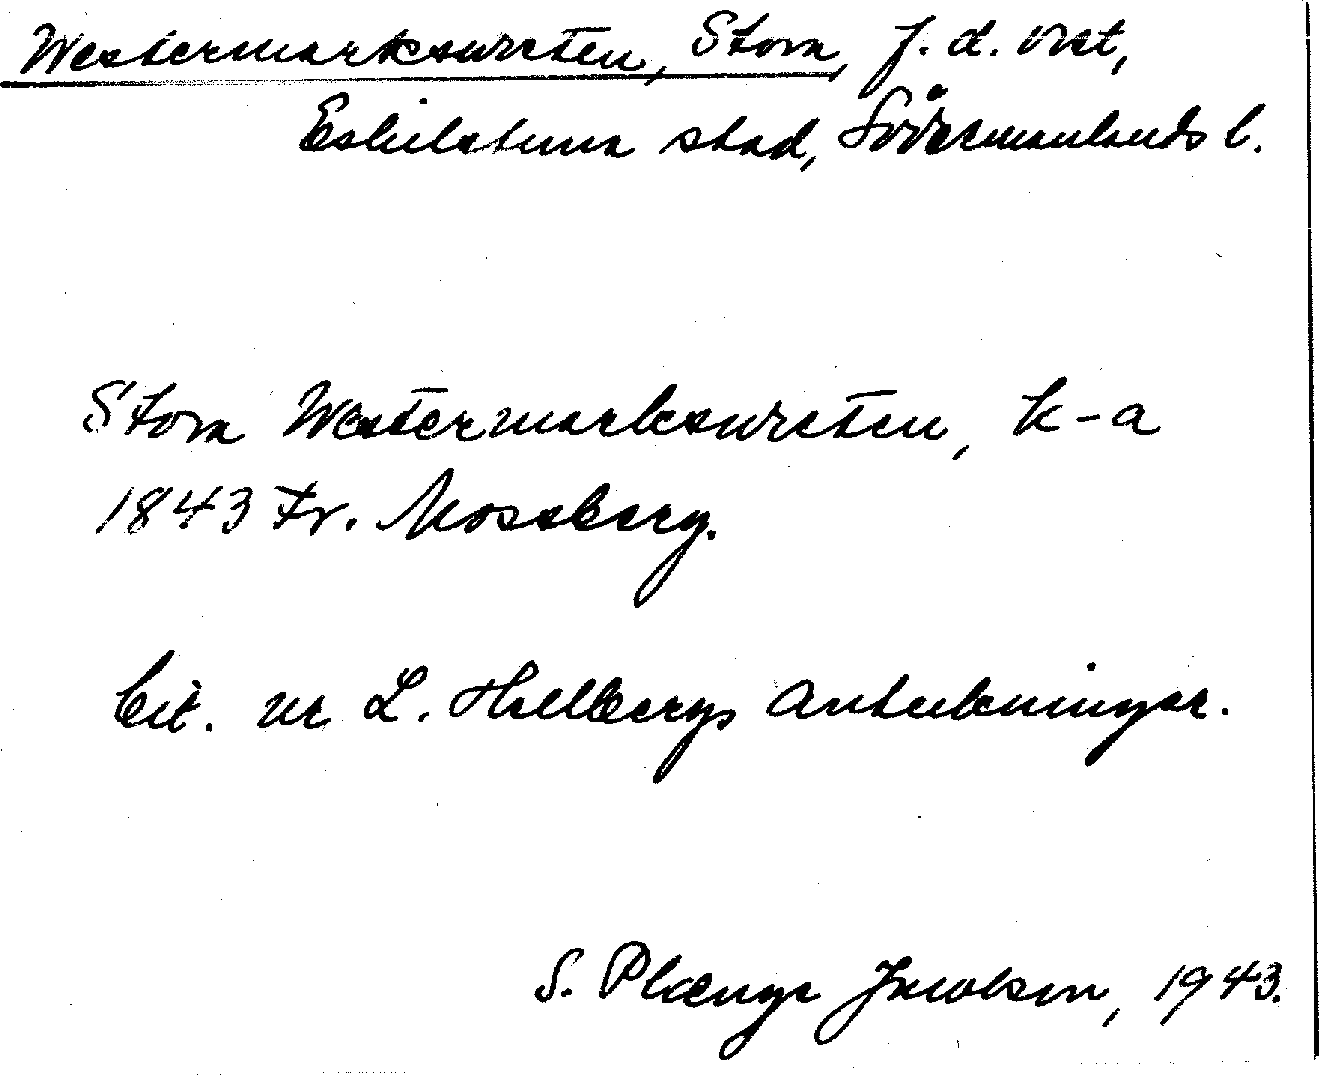 Westermarkswreten, Stora, f. d. vret,
Eskilstuna stad, Södermanlands l.
Stora Westermarkswreten, k-a
1843 Fr. Mossberg.
Cit. ur L. Hellbergs anteckningar.
S. Plœnge Jacobson, 1943.